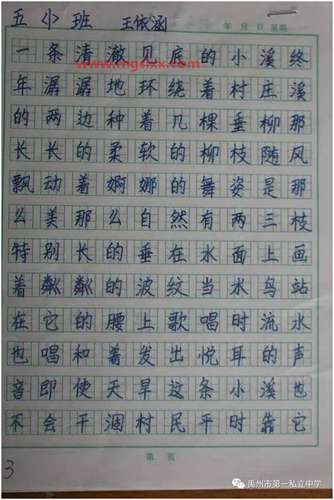 五小班 王依涵
年 月 日 星期
一条清澈见底的小溪终
年潺潺地环绕着村庄溪
的两边种着几棵垂柳那
长长的柔软的柳枝随风
飘动着婀娜的舞姿是那
么美那么自然有两三枝
特别长的垂在水面上画
着粼粼的波纹当水鸟站
在它的腰上歌唱时流水
也唱和着发出悦耳的声
音即使天旱这条小溪也
不会干涸村民平时靠它
第 页
3
禹州市第一私立中学